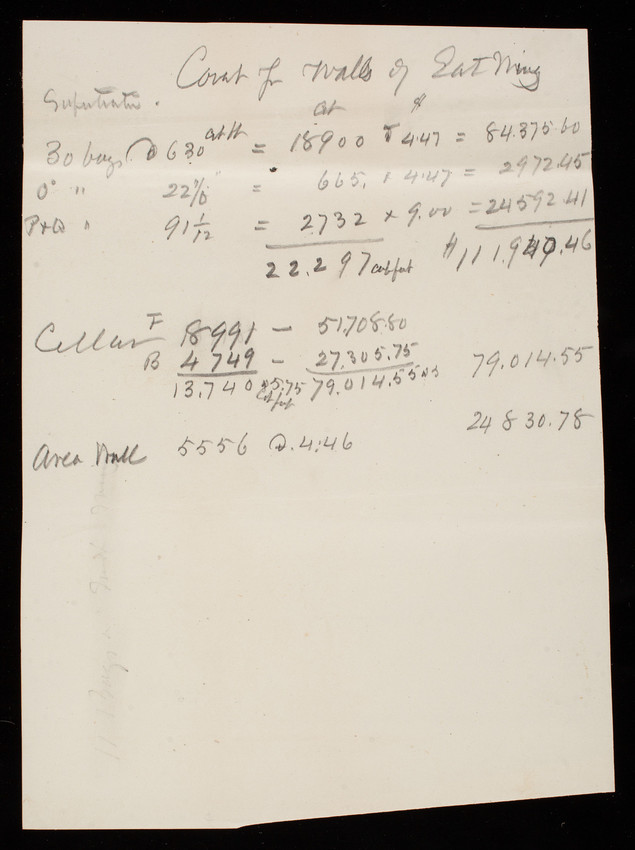 Count for Walls of East Wing
Superstructure.
cft $
30 bays @ 630 cub ft = 18900 @ 4.47 = 84.375.60
O " 22 1/6 " = 665, x 4.47 = 2972.45
P&Q " 91 1/12 = 2732 x 9.00 = 24592.41
22.297 cub feet $111.940.46
Cellar F 18991 — 51.708.80
B 4749 — 27.305.75 79.014.55
13.740 x 5.75 79.014.55
cub feet
24830.78
Area Wall 5556 @ 4.46